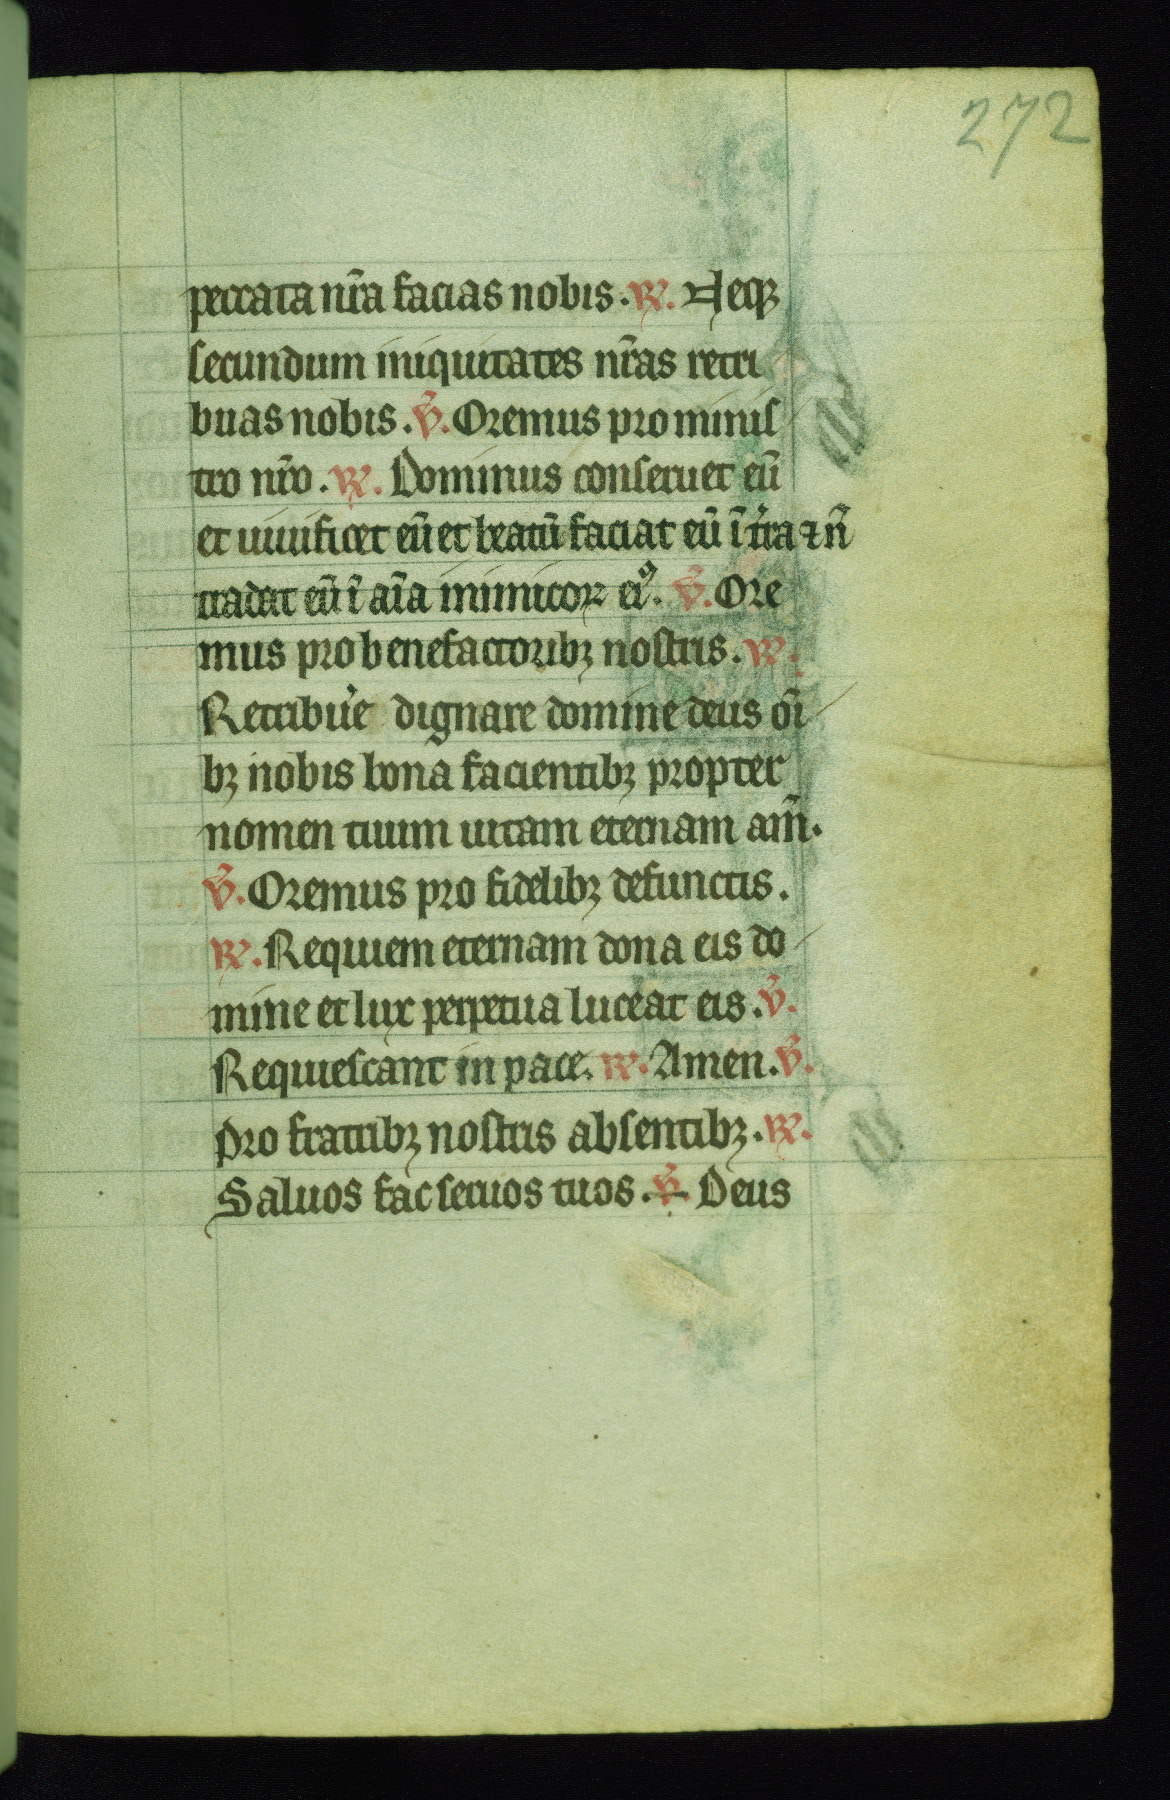 272
peccata nr̄a facias nobis. ℟. Neqꝫ
secundum iniquitates nr̄as retri
buas nobis. ℣. Oremus pro minis
tro nr̄o. ℟. Dominus conseruet eū
et uiuificet eū et beatū faciat eū ī t̄ra ⁊ n̄
tradat eū ī aīa inimicoꝝ eiꝰ. ℣. Ore
mus pro benefactoribꝫ nostris. ℟.
Retribue dignare domine deus om̄i
bꝫ nobis bona facientibꝫ propter
nomen tuum uitam eternam am̄.
℣. Oremus pro fidelibꝫ defunctis.
℟. Requiem eternam dona eis do
mine et lux perpetua luceat eis. ℣.
Requiescant in pace. ℟. Amen. ℣.
pro fratribꝫ nostris absentibꝫ. ℟.
Saluos fac seruos tuos. ℣. Deus